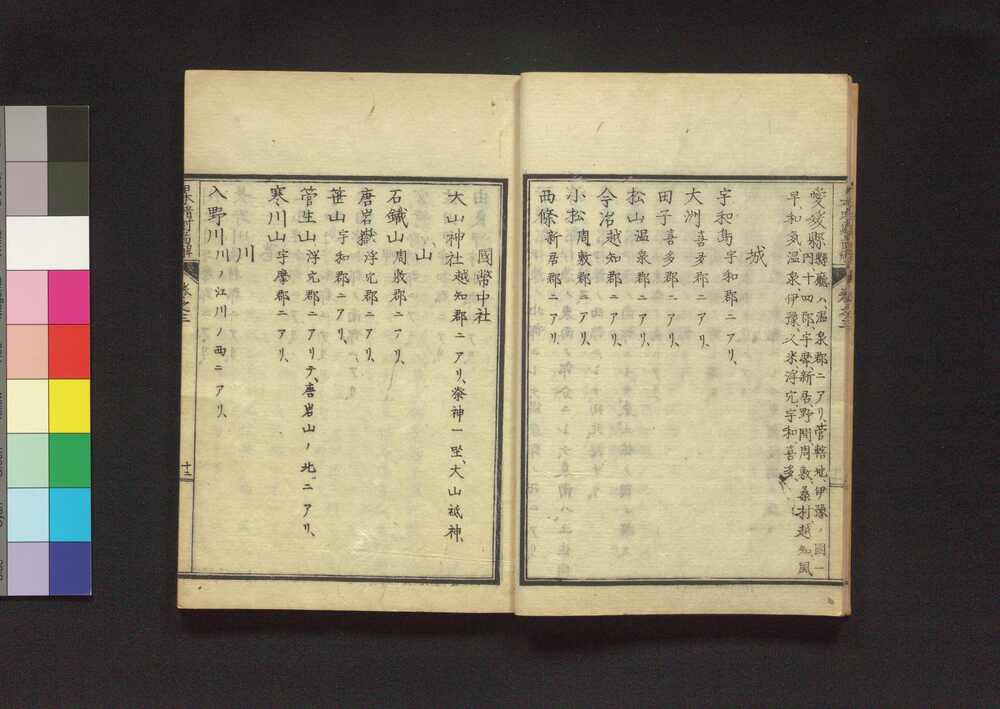 愛媛縣縣廳ハ温泉郡ニアリ、管轄地、伊豫ノ國一
円十四郡、宇摩、新居、野間、周敷、桑村、越知、風
早、和氣、温泉、伊豫、久米、浮穴、宇和、喜多、
城
宇和島宇和郡ニアリ、
大洲喜多郡ニアリ、
田子喜多郡ニアリ、
松山温泉郡ニアリ、
今治越知郡ニアリ、
小松周敷郡ニアリ、
西條新居郡ニアリ、
國幣中社
大山神社越知郡ニアリ、祭神一坐、大山祗神、
山
石鐵山周敷郡ニアリ、
唐岩嶽浮穴郡ニアリ、
笹山宇和郡ニアリ、
菅生山浮穴郡ニアリテ、唐岩山ノ北ニアリ、
寒川山宇摩郡ニアリ、
川
入野川川ノ江川ノ西ニアリ、
卷之三
十二